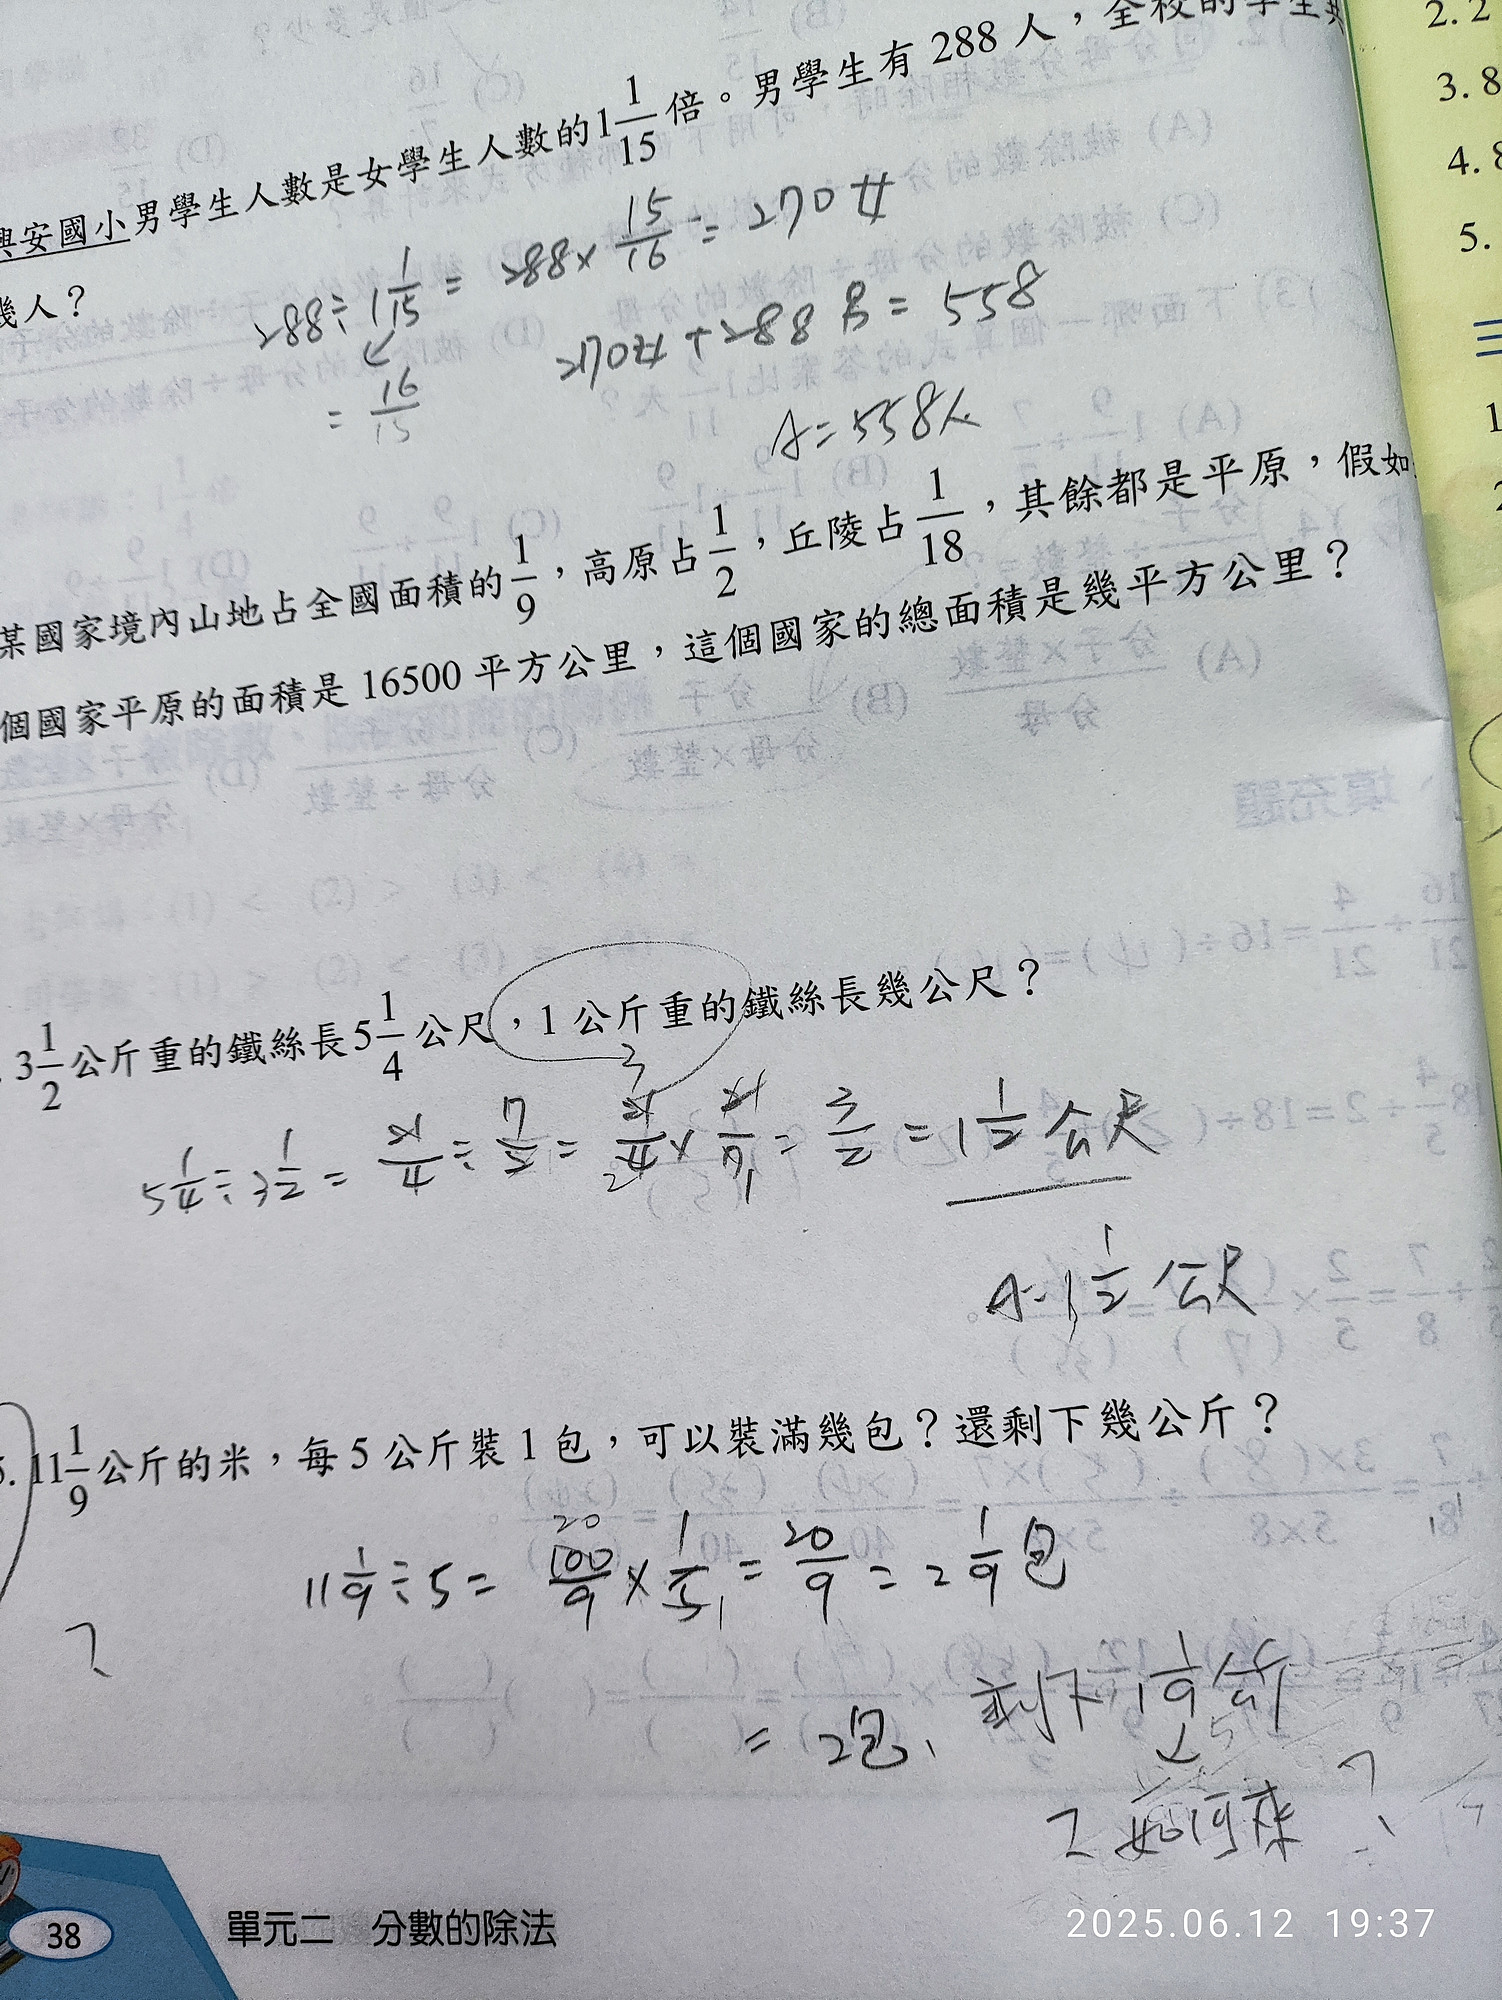 興安國小男學生人數是女學生人數的1 1/15倍。男學生有288人,全校的學生共
幾人?
288÷1 1/15=288×15/16=270女
=16/15
270女+288男=558
A=558人
某國家境內山地占全國面積的1/9,高原占1/2,丘陵占1/18,其餘都是平原,假如
個國家平原的面積是16500平方公里,這個國家的總面積是幾平方公里?
3 1/2公斤重的鐵絲長5 1/4公尺,1公斤重的鐵絲長幾公尺?
3
5 1/4÷3 1/2=21/4÷7/2=21/4×2/7=3/2=1 1/2公尺
2 1
A=1 1/2公尺
5. 11 1/9公斤的米,每5公斤裝1包,可以裝滿幾包?還剩下幾公斤?
20
11 1/9÷5=100/9×1/5=20/9=2 2/9包
1
?
=2包、剩下1 1/9公斤
如何來?
38
單元二 分數的除法
2. 2
3. 8
4. 8
5.
二
1
2
2025.06.12 19:37